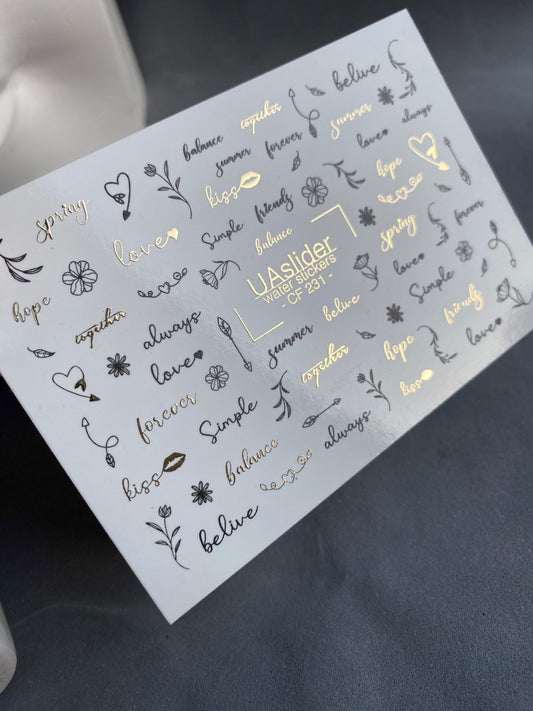 together
belive
balance
summer
forever
summer
love
always
kiss
hope
spring
love
Simple
friends
balance
UAslider
water stickers
- CF 231 -
spring
love
forever
hope
together
always
love
summer
belive
together
hope
Simple
friends
love
kiss
forever
Simple
always
kiss
balance
belive